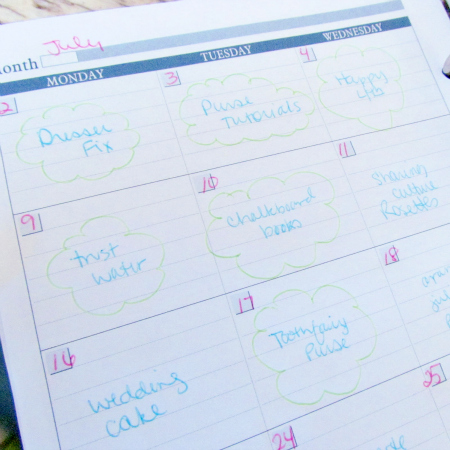 Month July
MONDAY TUESDAY WEDNESDAY
2 3 4
Dresser
Fix
Purse
Tutorials
Happy
4th
9 10 11
trust
water
Chalkboard
books
Sharing
culture
Rosettes
16 17 18
wedding
cake
Toothfairy
Purse
24 25